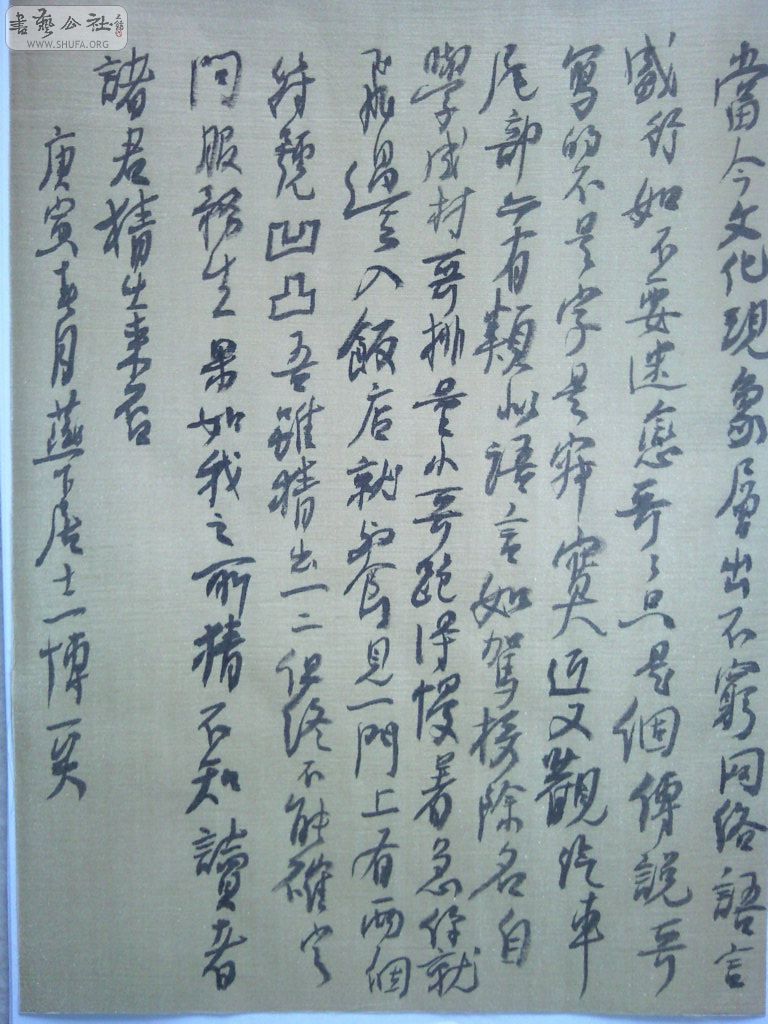 書藝公社
WWW.SHUFA.ORG
當今文化現象層出不窮网络語言
盛行如不要迷戀哥哥只是個傳說哥
寫的不是字是寂寞近又觀汽車
尾部亦有類似語言如駕校除名自
學成材哥排量小哥跑得慢着急你就
飛過去入飯店就餐見一門上有两個
符號凹凸吾雖猜出一二但終不能確定
问服務生果如我之所猜不知讀者
諸君猜出来否
庚寅春月燕下居士一博一笑